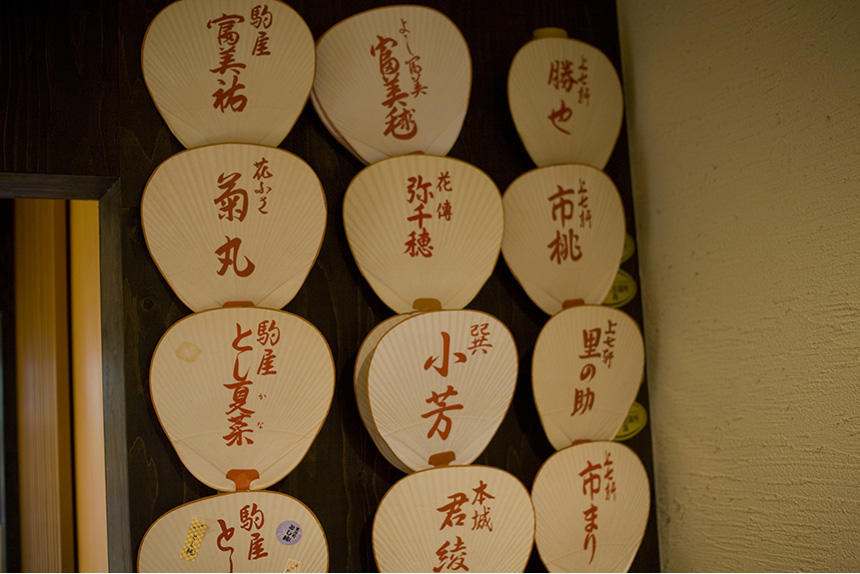 駒屋
富美祐
よし富美
富美毬
上七軒
勝也
花ふさ
菊丸
花傳
弥千穂
上七軒
市桃
駒屋
とし夏菜
かな
巽
小芳
上七軒
里の助
駒屋
とし
本城
君綾
上七軒
市まり